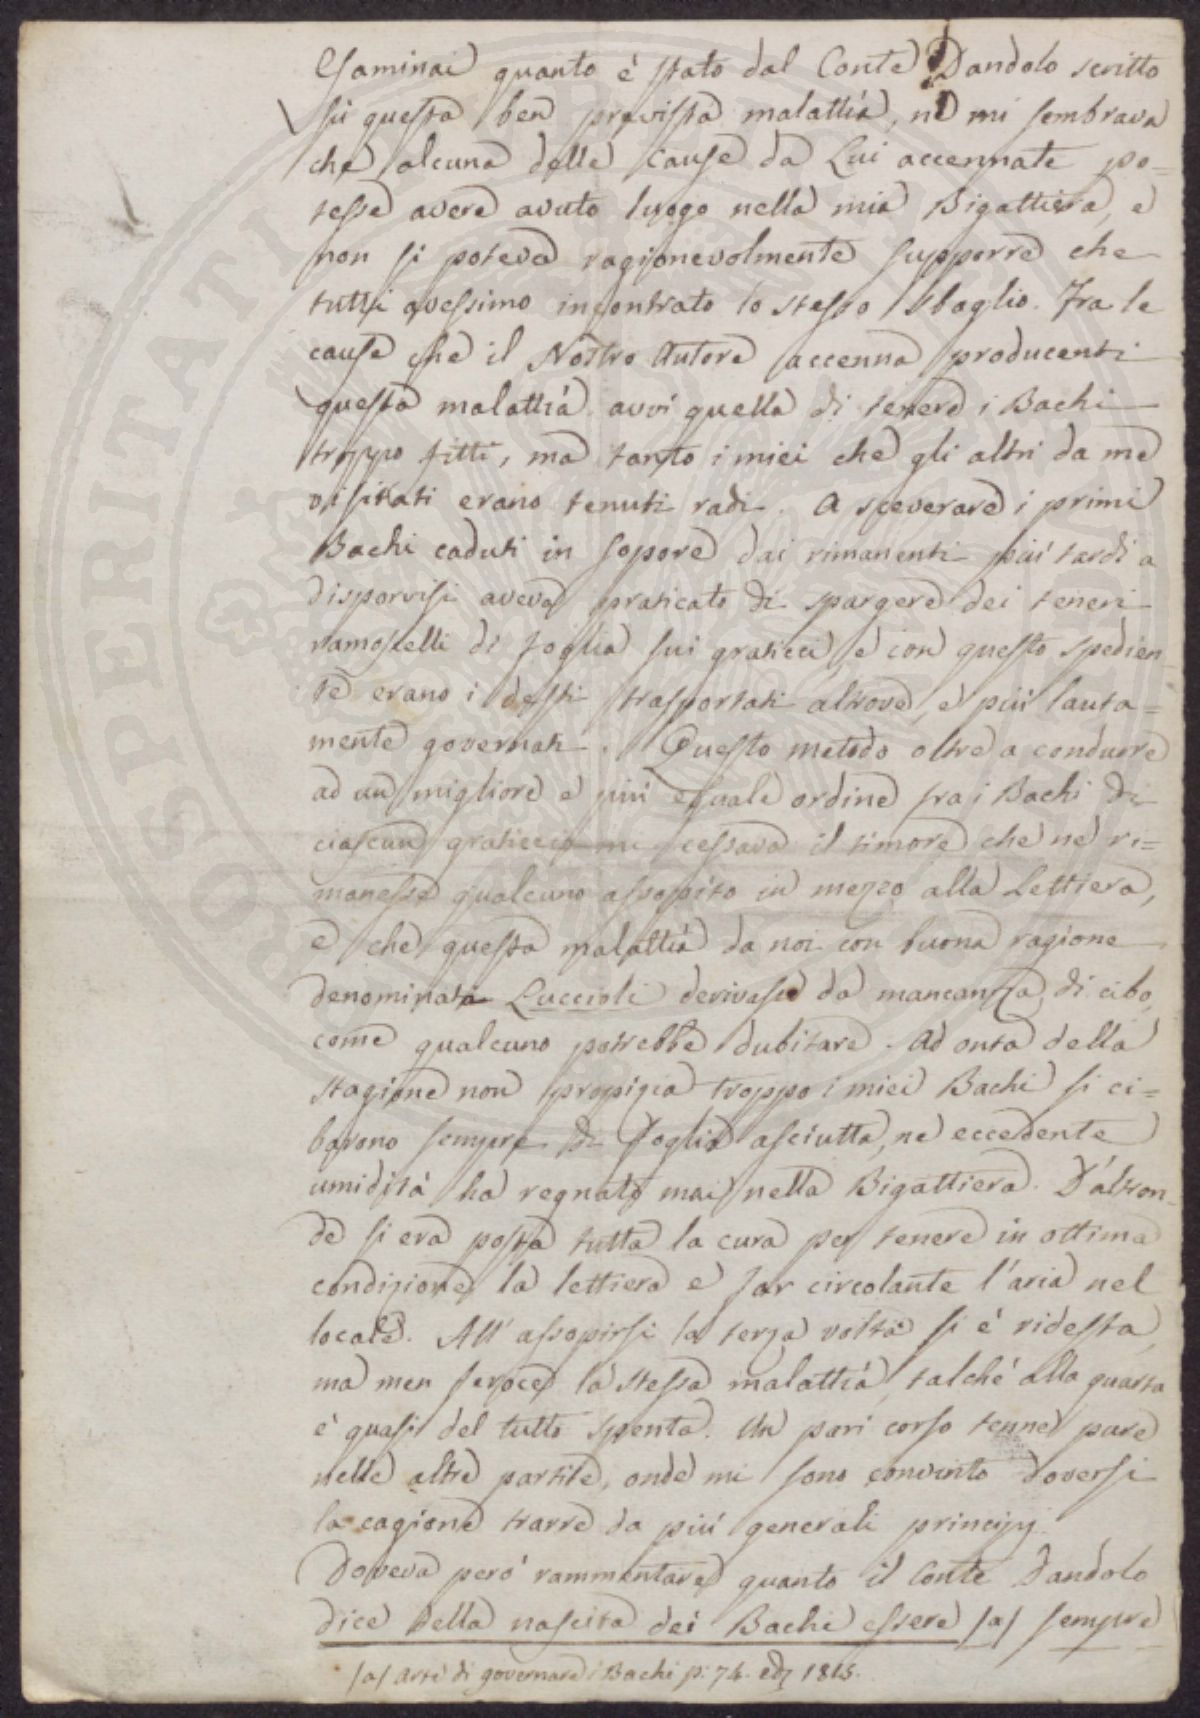 Esaminai quanto è stato dal Conte Dandolo scritto
sù questa ben prevista malattia, nè mi sembrava
che alcuna delle cause da Lui accennate po=
tesse avere avuto luogo nella mia Bigattiera, e
non si poteva ragionevolmente supporre che
tutti avessimo incontrato lo stesso sbaglio. Fra le
cause che il Nostro Autore accenna producenti
questa malattia avvi quella di tenere i Bachi
troppo fitti, ma tanto i miei che gli altri da me
visitati erano tenuti radi. A sceverare i primi
Bachi caduti in sopore dai rimanenti più tardi a
disporvisi aveva praticato di spargere dei teneri
ramoscelli di foglia sui graticci, e con questo spedien=
te erano i desti trasportati altrove, e più lauta=
mente governati. Questo metodo oltre a condurre
ad un migliore e più eguale ordine fra i Bachi di
ciascun graticcio mi cessava il timore che ne ri=
manesse qualcuno assopito in mezzo alla Lettiera,
e che questa malattia da noi con buona ragione
denominata Luccioli derivasse da mancanza di cibo,
come qualcuno potrebbe dubitare. Ad onta della
stagione non propizia troppo i miei Bachi si ci=
barono sempre di foglia asciutta, ne eccedente
umidità ha regnato mai nella Bigattiera. D'altron=
de si era posta tutta la cura per tenere in ottima
condizione la lettiera e far circolante l'aria nel
locale. All' assopirsi la terza volta si è ridesta,
ma men feroce la stessa malattia, talchè alla quarta
è quasi del tutto spenta. Un pari corso tenne pure
nelle altre partite, onde mi sono convinto doversi
la cagione trarre da più generali principj.
Doveva però rammentare quanto il Conte Dandolo
dice della nascita dei Bachi essere /a/ sempre
/a/ Arte di governare i Bachi p: 74. ediz 1815.
SPERITATI